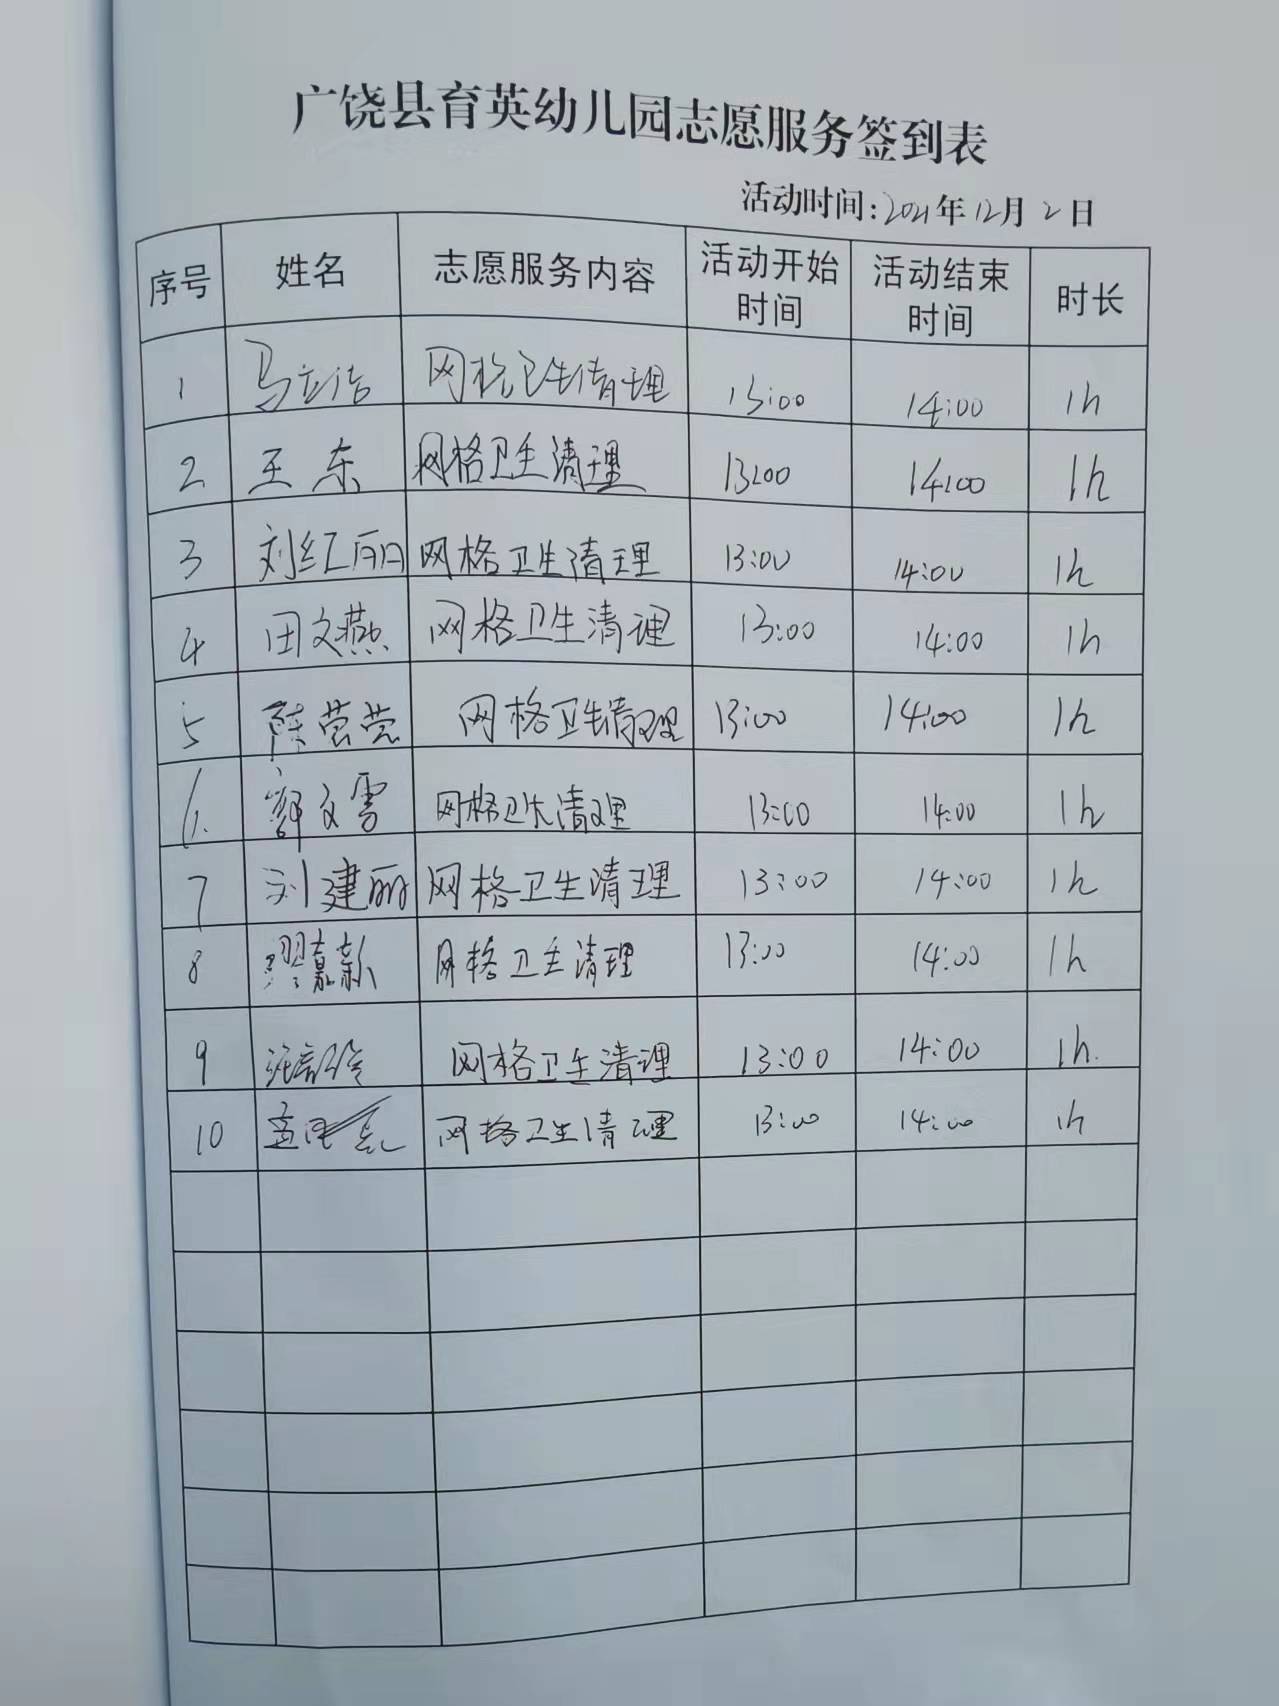 广饶县育英幼儿园志愿服务签到表
活动时间:2021年12月2日
序号 姓名 志愿服务内容 活动开始时间 活动结束时间 时长
1 马立洁 网格卫生清理 13:00 14:00 1h
2 王东 网格卫生清理 13:00 14:00 1h
3 刘红丽 网格卫生清理 13:00 14:00 1h
4 田文燕 网格卫生清理 13:00 14:00 1h
5 陈莹莹 网格卫生清理 13:00 14:00 1h
6. 文雪 网格卫生清理 13:00 14:00 1h
7 刘建丽 网格卫生清理 13:00 14:00 1h
8 网格卫生清理 13:00 14:00 1h
9 网格卫生清理 13:00 14:00 1h.
10 网格卫生清理 13:00 14:00 1h